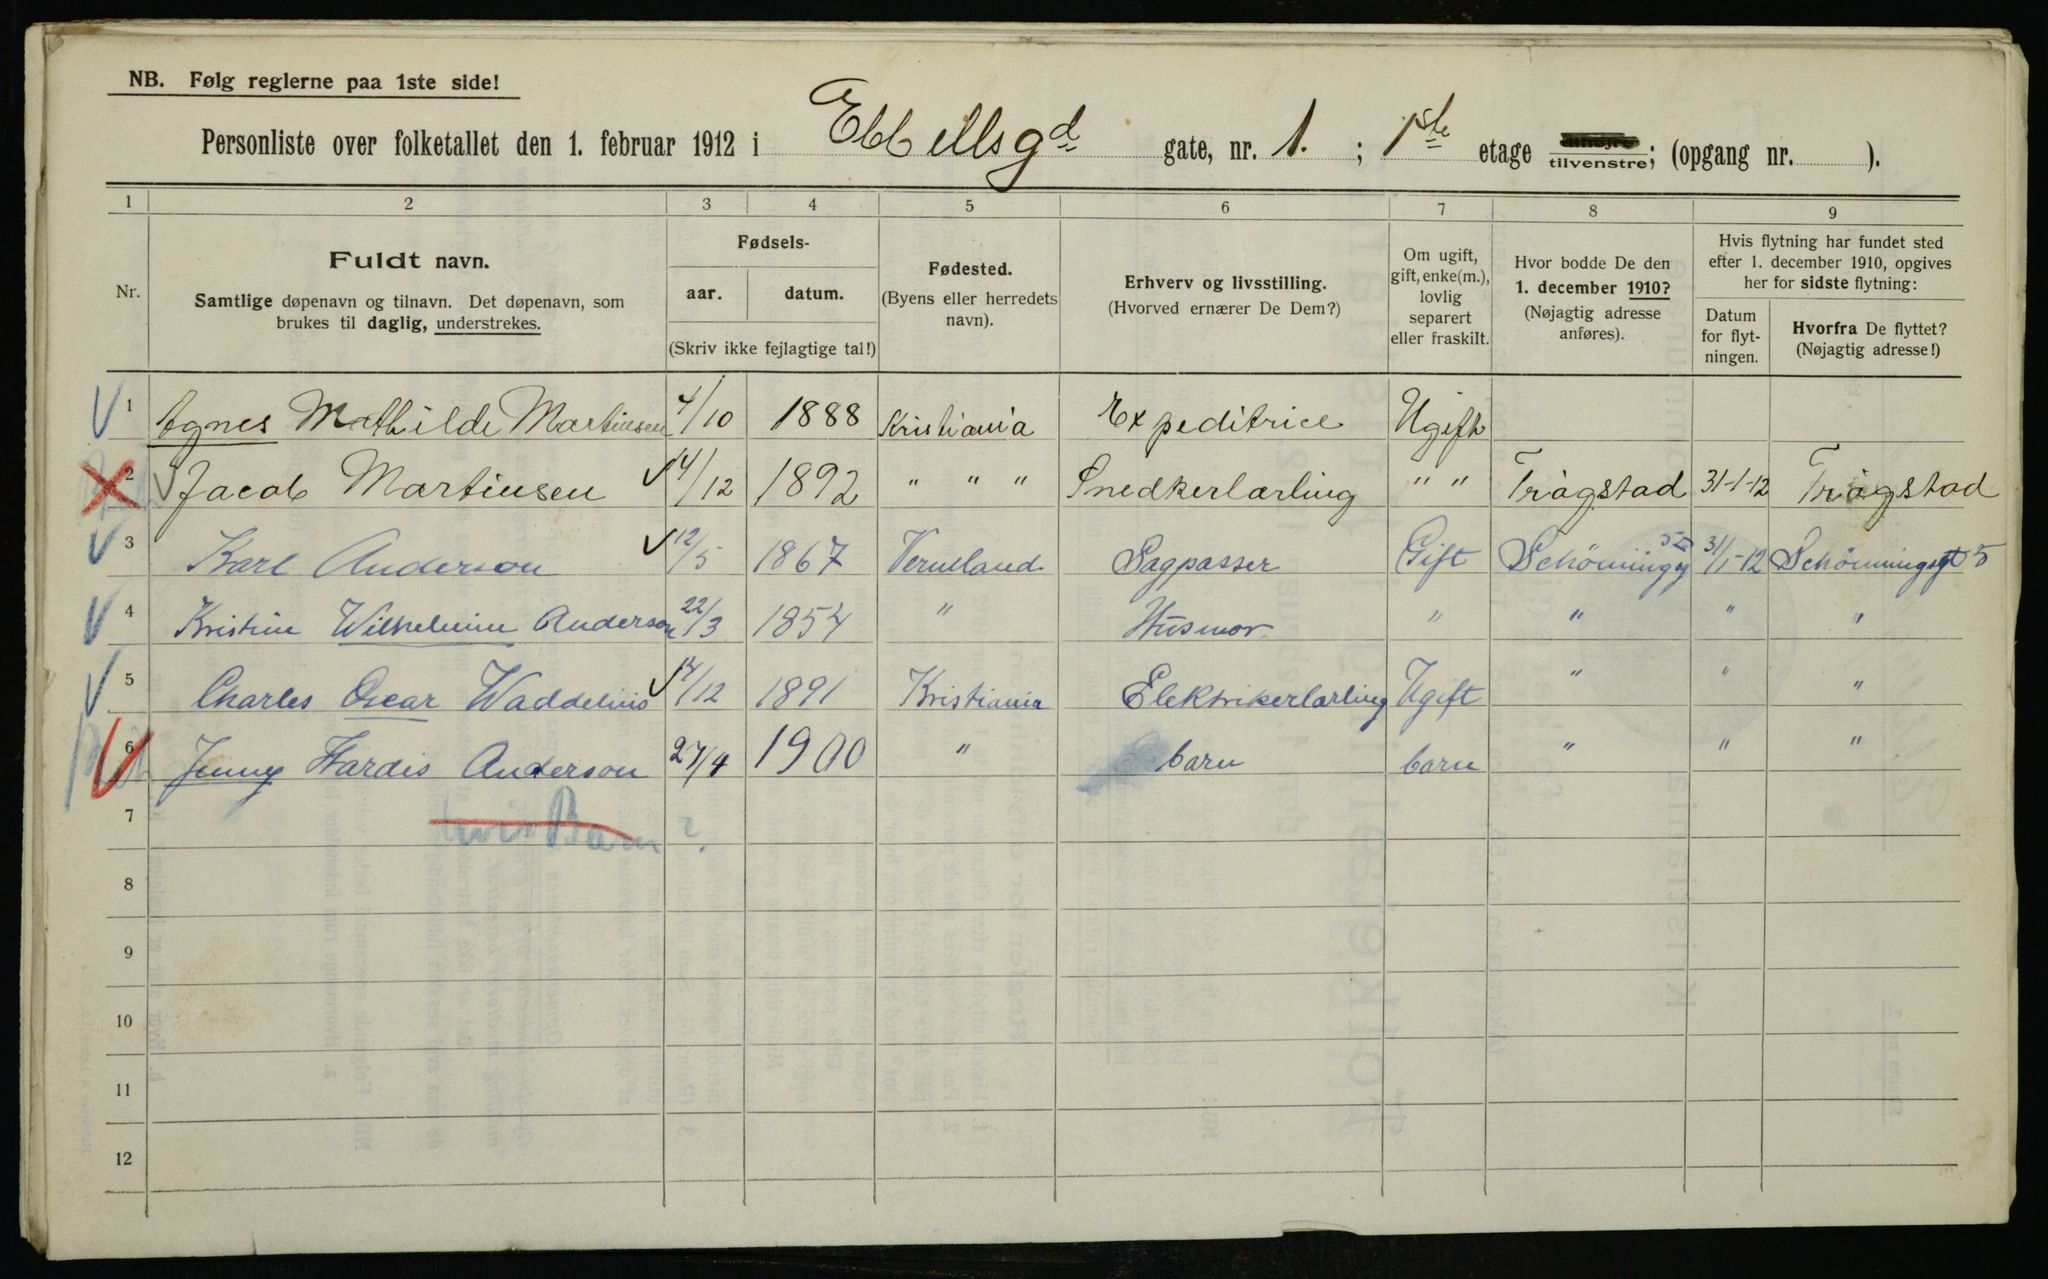 NB. Følg reglerne paa 1ste side!
Personliste over folketallet den 1. februar 1912 i Ebbellsgd gate, nr. 1. ; 1ste etage tilvenstre; (opgang nr. ).
1 2 3 4 5 6 7 8 9
Nr.
Fuldt navn.
Samtlige døpenavn og tilnavn. Det døpenavn, som
brukes til daglig, understrekes.
Fødsels-
aar. datum.
(Skriv ikke fejlagtige tal!)
Fødested.
(Byens eller herredets
navn).
Erhverv og livsstilling.
(Hvorved ernærer De Dem?)
Om ugift,
gift, enke(m.),
lovlig
separert
eller fraskilt.
Hvor bodde De den
1. december 1910?
(Nøjagtig adresse
anføres).
Hvis flytning har fundet sted
efter 1. december 1910, opgives
her for sidste flytning:
Datum
for flyt-
ningen.
Hvorfra De flyttet?
(Nøjagtig adresse!)
1 Agnes Mathilde Martinsen 4/10 1888 Kristiania Expeditrice Ugift
2 Jacob Martinsen 14/12 1892 " " " Snedkerlærling " " Trøgstad 31-1-12 Trøgstad
3 Karl Anderson 12/5 1867 Vermland Sagpasser Gift Schönninggt 5 II 31/1-12 Schönningsgt 5
4 Kristine Wilhelmine Anderson 22/3 1854 " Husmor " " " "
5 Charles Oscar Waddelius 14/12 1891 Kristiania Elektrikerlærling Ugift " " "
6 Jenny Hardis Anderson 27/4 1900 " barn barn " " "
7 Barn ?
8
9
10
11
12